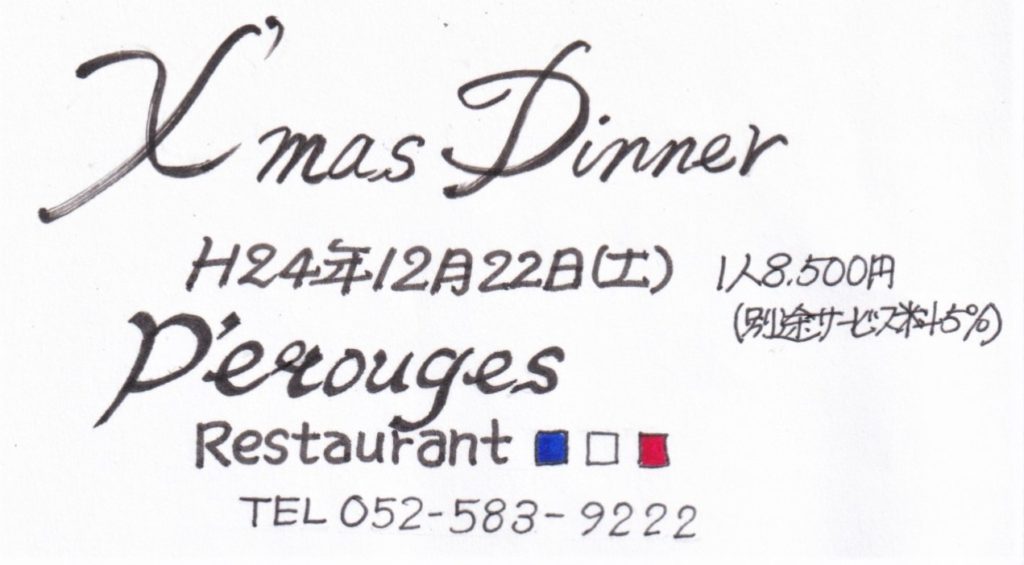 X'mas Dinner
H24年12月22日(土) 1人8.500円
(別途サービス料5%)
P'érouges
Restaurant
TEL 052-583-9222